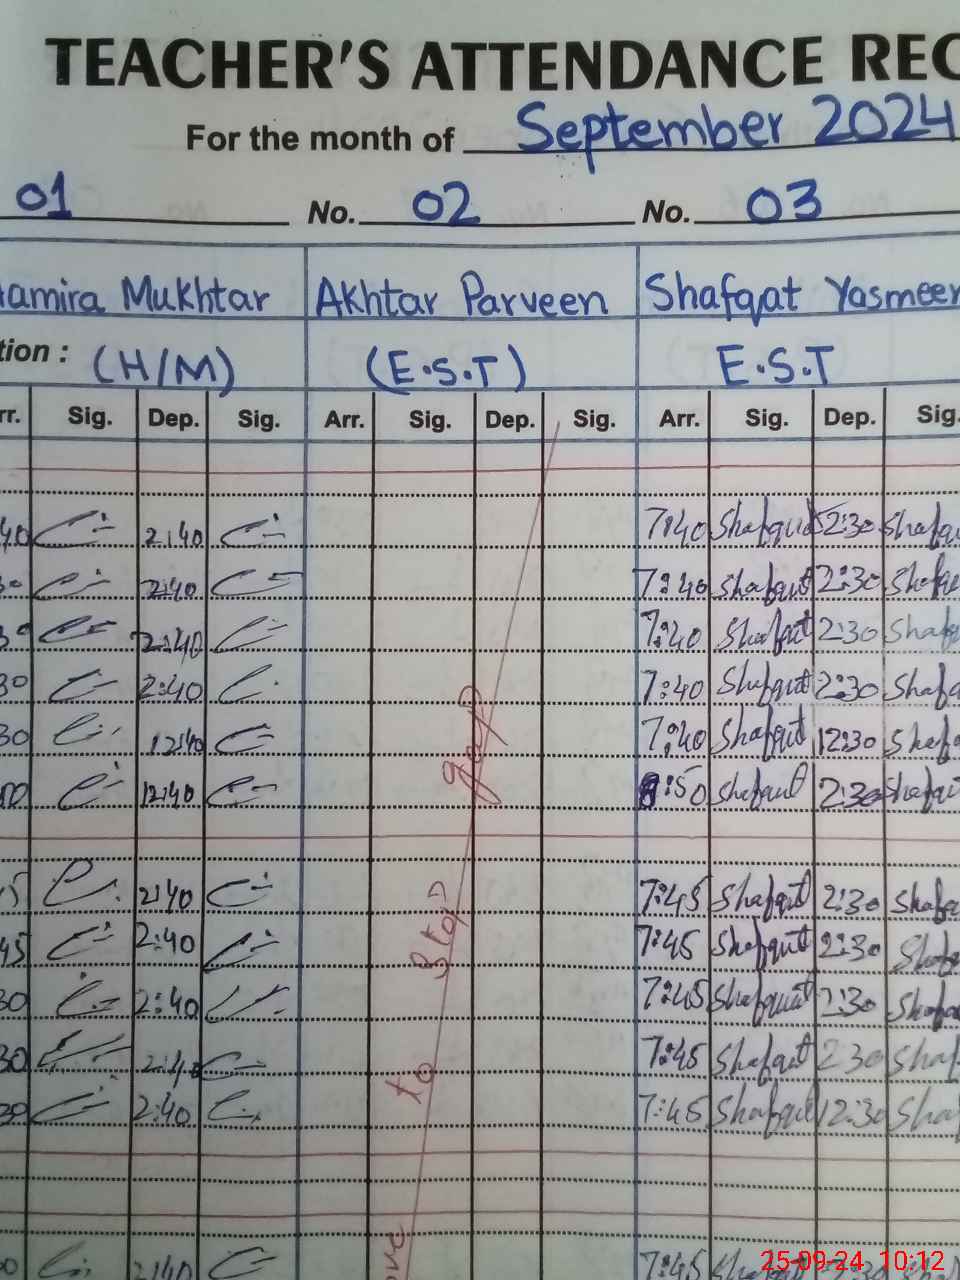 TEACHER'S ATTENDANCE REC
For the month of September 2024
01 No. 02 No. 03
amira Mukhtar Akhtar Parveen Shafqat Yasmeen
tion : (H/M) (E.S.T) E.S.T
rr. Sig. Dep. Sig. Arr. Sig. Dep. Sig. Arr. Sig. Dep. Sig.
40 2:40 7:40 Shafqat 2:30 Shafq
30 2:40 7:40 Shafqat 2:30 Shafq
30 2:40 7:40 Shafqat 2:30 Shafq
30 2:40 7:40 Shafqat 2:30 Shafq
30 12:40 7:40 Shafqat 12:30 Shafq
12:40 :50 Shafqat 2:30 Shafq
5 2:40 7:45 Shafqat 2:30 Shafq
45 2:40 7:45 Shafqat 2:30 Shafq
30 2:40 7:45 Shafqat 2:30 Shafq
30 2:40 7:45 Shafqat 2:30 Shaf
30 2:40 7:45 Shafqat 12:30 Sha
2:40 7:45
to Stop gap
25-09-24 10:12